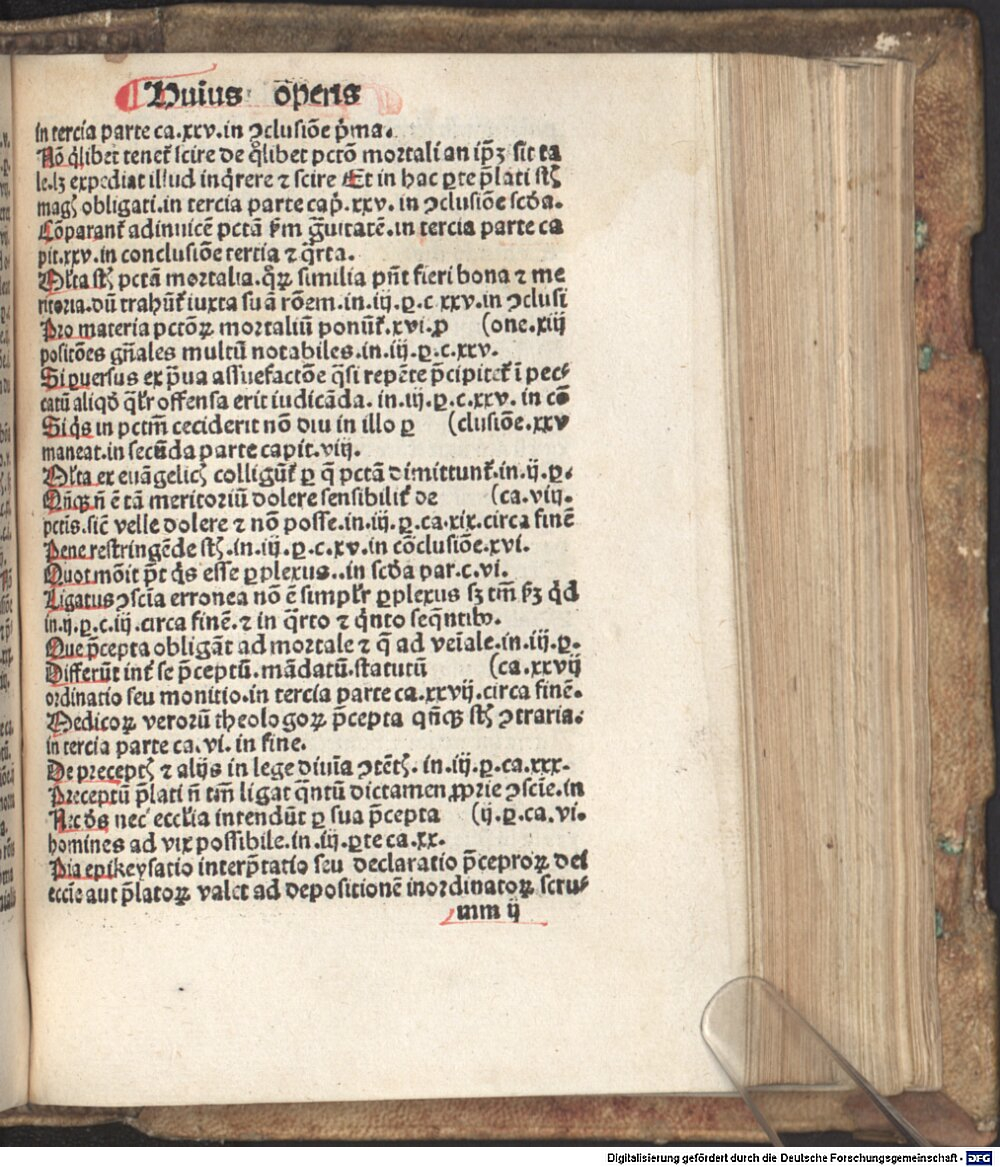 Huius operis
in tercia parte ca.xxv.in ↄclusiõe p̃ma.
Nõ q̃libet tenet᷑ scire de q̃libet pctõ mortali an ip̃ꝫ sit ta
le.lꝫ expediat illud inq̃rere ⁊ scire Et in hac ꝑte p̃lati st̃ꝭ
magꝭ obligati.in tercia parte cap̃.xxv. in ↄclusiõe scd̃a.
Cõparant᷑ adinuicẽ pctã ẜm g̃uitatẽ.in tercia parte ca
pit.xxv.in conclusiõe tertia ⁊ q̃rta.
Ml̃ta st̃ꝭ pctã mortalia.q̃ꝝ similia pñt fieri bona ⁊ me
ritoria.dũ trahũt᷑ iuxta suã rõem.in.iij.ꝑ.c xxv.in ↄclusi
Pro materia pctõꝝ mortaliũ ponũt᷑.xvi.ꝓ (one.xiij
positões gñales multũ notabiles.in.iij.ꝑ.c.xxv.
Si ꝑuersus ex p̃ua assuefactõe q̃si repẽte p̃cipitet᷑ ĩ pec⸗
catũ aliqd̃ q̃lr̃ offensa erit iudicãda. in.iij.ꝑ.c.xxv. in cõ
Si q̃s in pctm̃ ceciderit nõ diu in illo ꝑ (clusiõe.xxv
maneat.in secũda parte capit.viij.
Ml̃ta ex euãgelicꝭ colligũt᷑ ꝑ q̃ pctã dimittunt᷑.in.ij.ꝑ.
Qñqꝫ ñ ẽ tã meritoriũ dolere sensibilit᷑ de (ca.viij.
pctis.sic̃ velle dolere ⁊ nõ posse.in.iij.ꝑ.ca.xix.circa finẽ
Pene restringẽde st̃ꝭ.in.iij.ꝑ.c.xv.in cõclusiõe.xvi.
Quot mõit p̃t q̃s esse ꝑplexus..in scd̃a par.c.vi.
Ligatus ↄscĩa erronea nõ ẽ simpl̃r ꝑplexus sꝫ tm̃ ẜꝫ q̃d
in.ij.ꝑ.c.iij.circa finẽ.⁊ in q̃rto ⁊ q̃nto seq̃ntibꝰ.
Que p̃cepta obligãt ad mortale ⁊ q̃ ad veĩale.in.iij.ꝑ.
Differũt int᷑ se p̃ceptũ.mãdatũ.statutũ (ca.xxvij
ordinatio seu monitio.in tercia parte ca.xxvij.circa finẽ.
Medicoꝝ veroꝝ theologoꝝ p̃cepta qñqꝫ st̃ꝭ ↄtraria.
in tercia parte ca.vi. in fine.
De preceptꝭ ⁊ alijs in lege diuĩa ↄtẽtꝭ. in.iij.ꝑ.ca.xxx.
Preceptũ p̃lati ñ tm̃ ligat q̃ntũ dictamen ꝓprie ↄscĩe.in
Nec d̃s nec eccl̃ia intendũt ꝑ sua p̃cepta (ij.ꝑ.ca.vi.
homines ad vix possibile.in.iij.ꝑte ca.xx.
Pia epikeysatio interp̃tatio seu declaratio p̃ceproꝝ dei
eccĩe aut p̃latoꝝ valet ad depositionẽ inordinatoꝝ scru⸗
mm ij
Digitalisierung gefördert durch die Deutsche Forschungsgemeinschaft - DFG